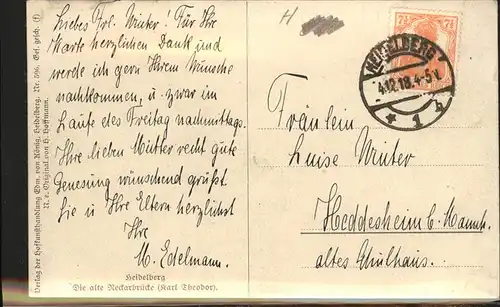 Liebes Frl. Winter! Für Ihre
Karte herzlichen Dank und
werde ich gern Ihrem Wunsche
nachkommen, u. zwar im
Laufe des Freitag nachmittags.
Ihre lieben Mutter recht gute
Genesung wünschend grüßt
Sie u Ihre Eltern herzlichst
Ihre
M. Edelmann.
Heidelberg
Die alte Neckarbrücke (Karl Theodor).
Verlag der Hofkunsthandlung Edm. von König, Heidelberg. Nr. 596. Ges. gesch. (f)
N. e. Original von H. Hoffmann.
H
7½ 7½
HEIDELBERG
4.12.18.4-5N.
* 1 h
Fräulein
Luise Winter
Heddesheim b. Mannh.
altes Schulhaus.